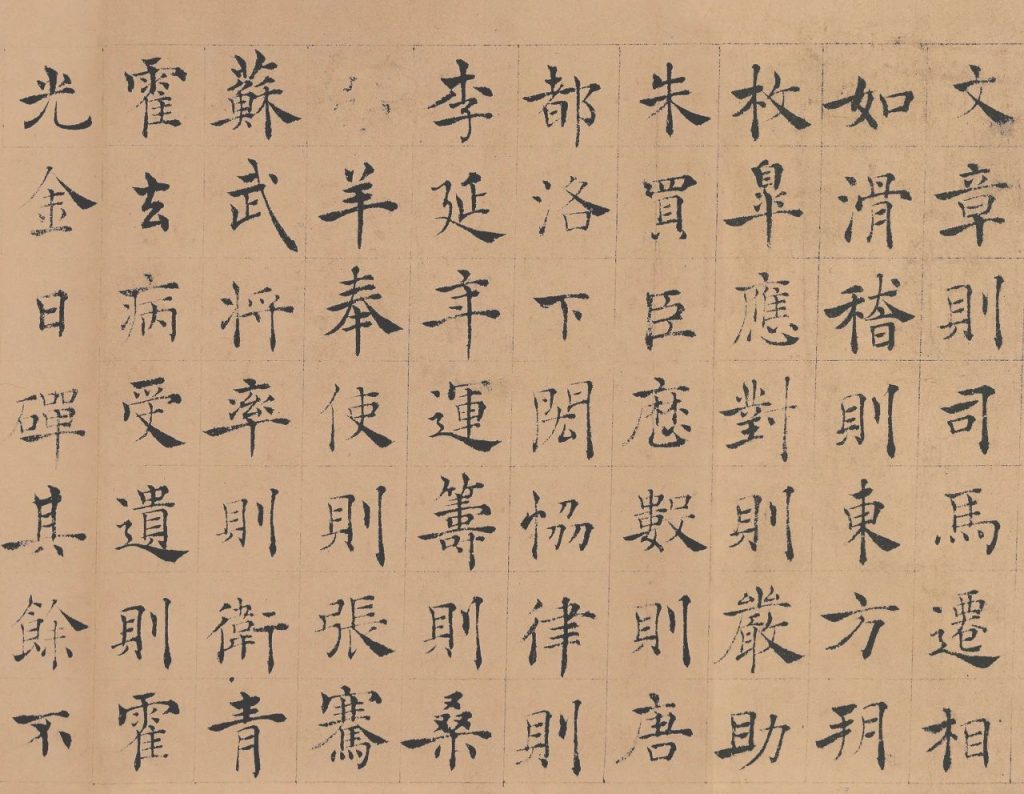 文章則司馬遷相
如滑稽則東方朔
枚皐應對則嚴助
朱買臣歷數則唐
都洛下閎恊律則
李延年運籌則桑
羊奉使則張騫
蘇武將率則衛青
霍去病受遺則霍
光金日磾其餘不